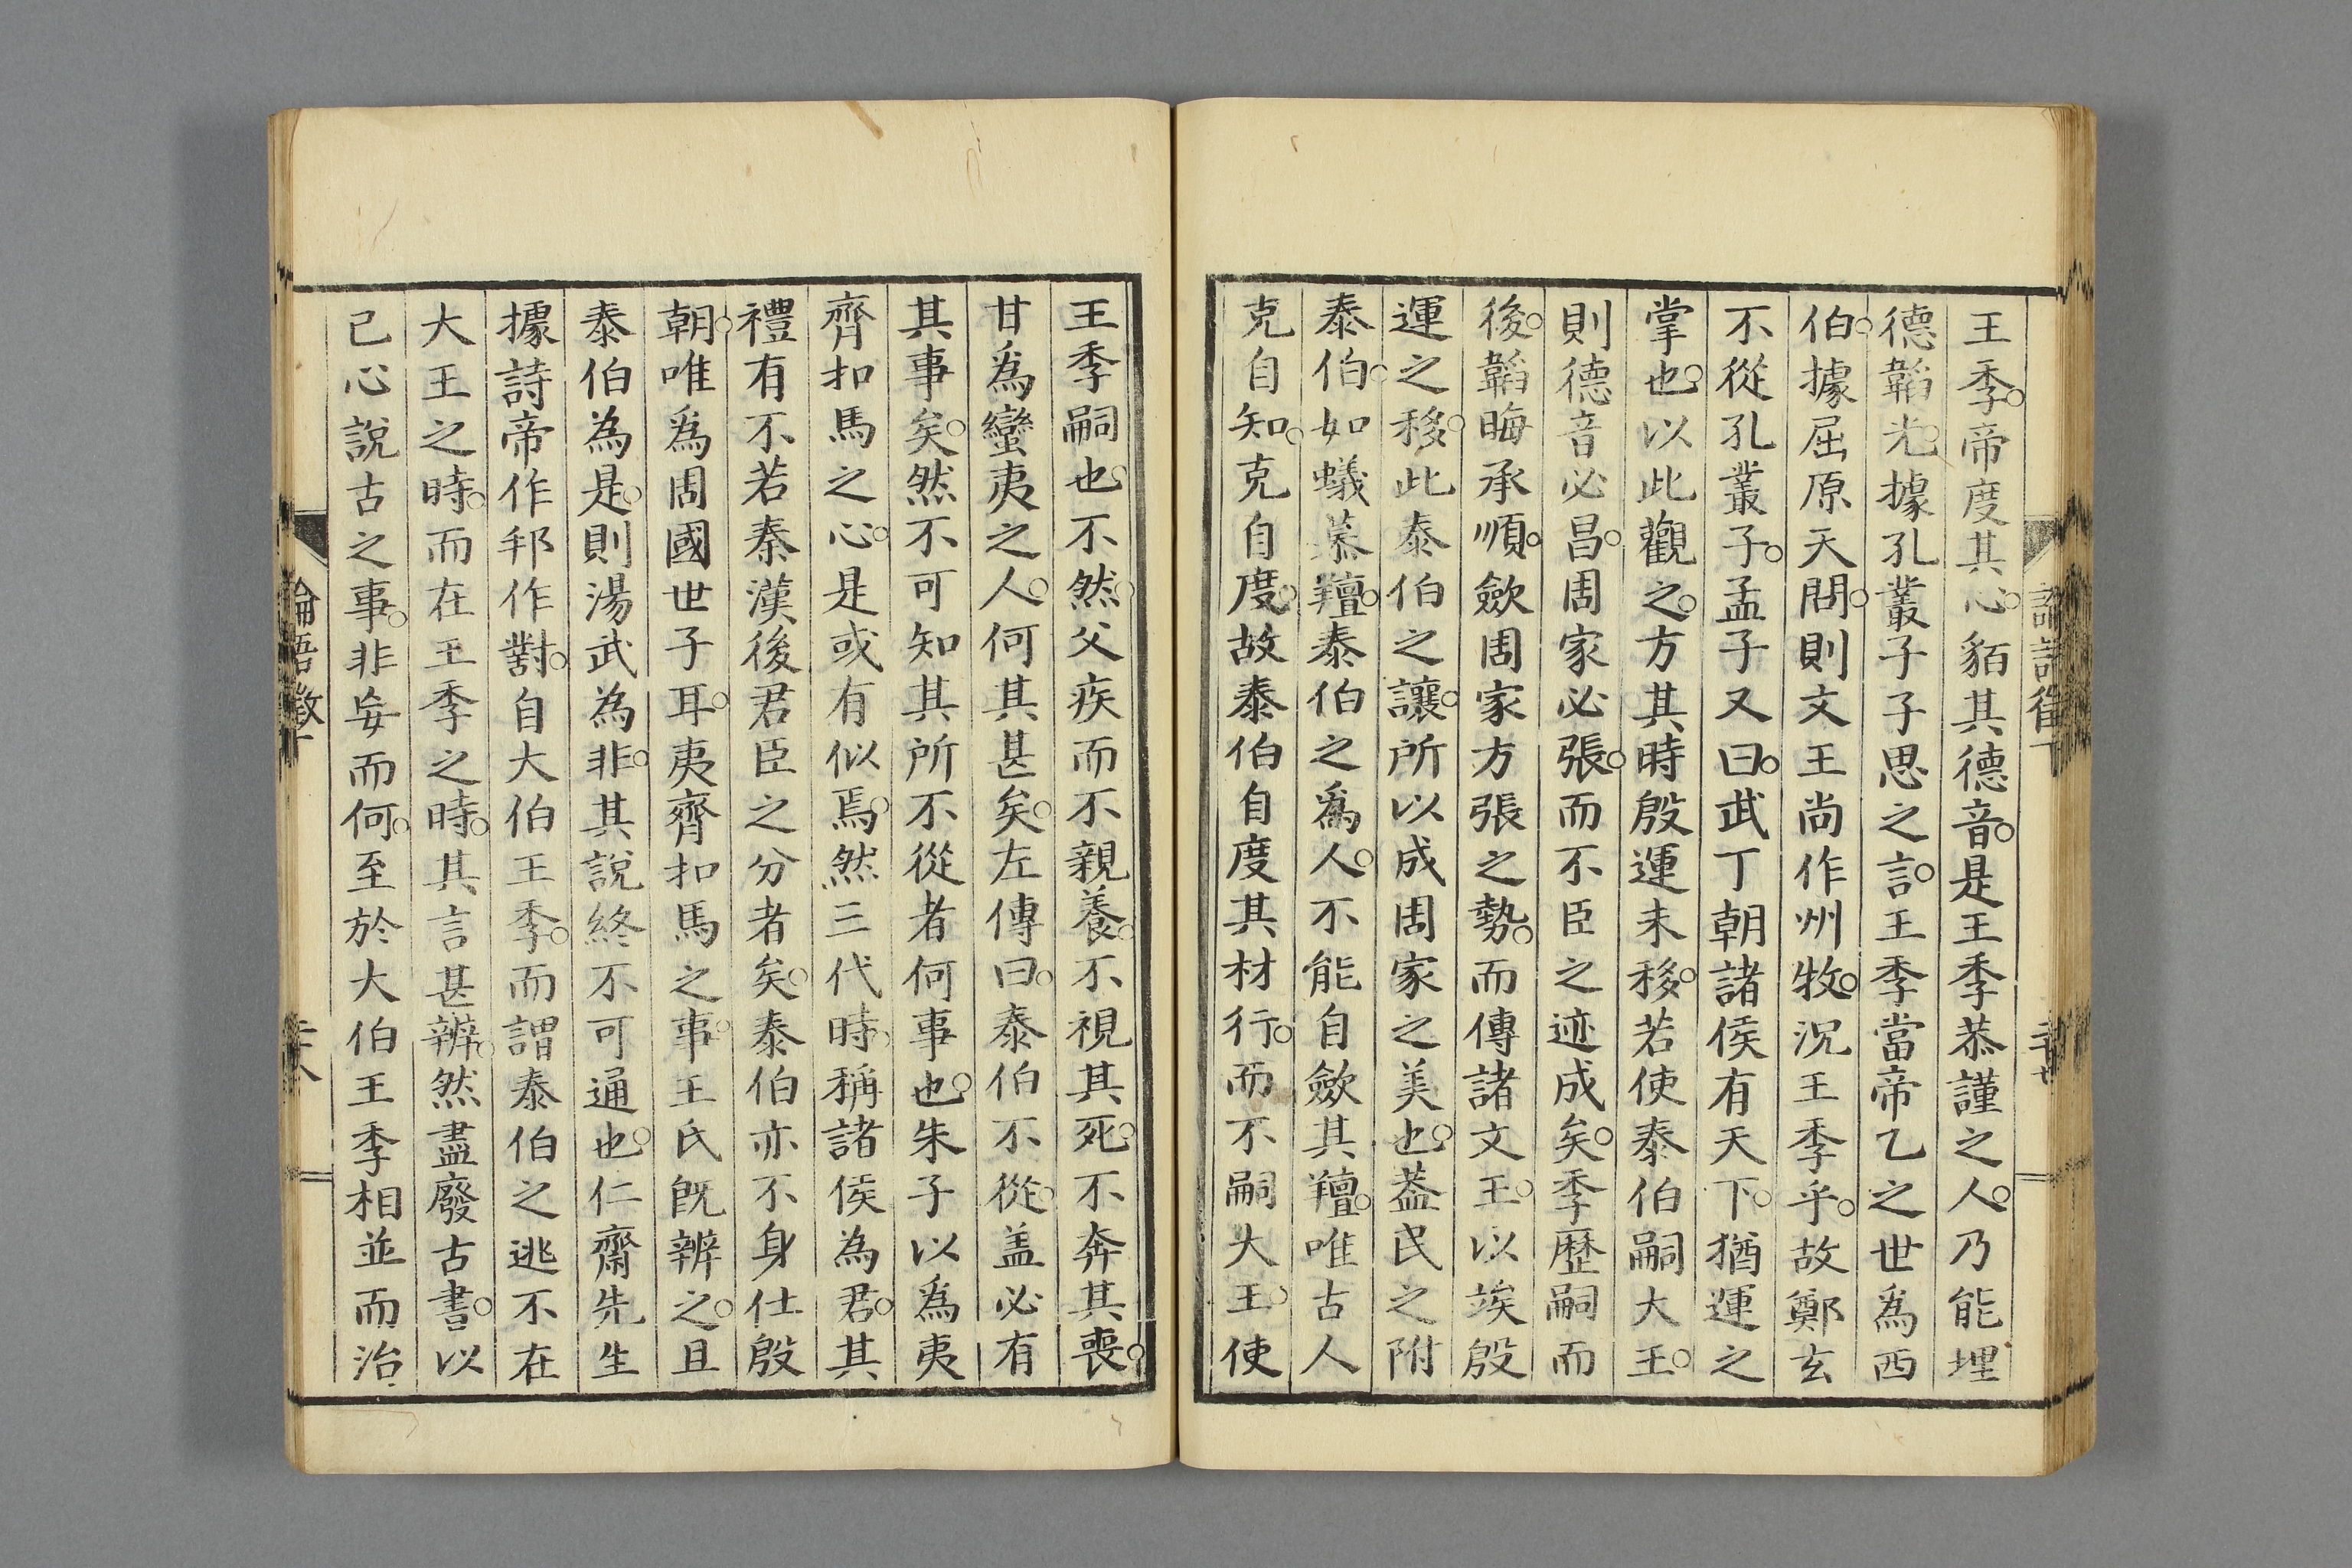 王季○帝度其心○貊其德音○是王季恭謹之人○乃能埋
德韜光○據孔叢子子思之言○王季當帝乙之世爲西
伯○據屈原天問○則文王尚作州牧○況王季乎○故鄭玄
不從孔叢子○孟子又曰○武丁朝諸侯有天下○猶運之
掌也○以此觀之○方其時殷運未移○若使泰伯嗣大王○
則德音必昌○周家必張○而不臣之迹成矣○季歷嗣而
後○韜晦承順○歛周家方張之勢○而傳諸文王○以竢殷
運之移○此泰伯之讓○所以成周家之美也○葢民之附
泰伯○如蟻慕羶○泰伯之爲人○不能自歛其羶○唯古人
克自知○克自度○故泰伯自度其材行○而不嗣大王○使
王季嗣也○不然○父疾而不親養○不視其死○不奔其喪○
甘爲蠻夷之人○何其甚矣○左傳曰○泰伯不從○盖必有
其事矣○然不可知其所不從者何事也○朱子以爲夷
齊扣馬之心○是或有似焉○然三代時○稱諸侯為君○其
禮有不若秦漢後君臣之分者矣○泰伯亦不身仕殷
朝○唯爲周國世子耳○夷齊扣馬之事○王氏既辨之○且
泰伯為是○則湯武為非○其說終不可通也○仁齋先生
據詩帝作邦作對○自大伯王季○而謂泰伯之逃不在
大王之時○而在王季之時○其言甚辨○然盡廢古書○以
己心說古之事○非妄而何○至於大伯王季相並而治